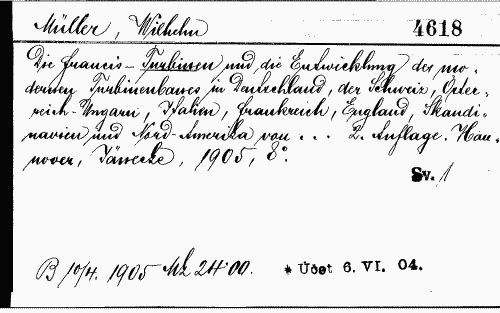 Müller, Wilhelm 4618
Die Francis-Turbinen und die Entwicklung des mo-
dernen Turbinenbaues in Deutschland, der Schweiz, Öster-
reich-Ungarn, Italien, Frankreich, England, Skandi-
navien und Nord-Amerika von ... 2. Auflage. Han-
nover, Jänecke, 1905, 8°.
Sv. 1
B 10/4. 1905 Mk 24.00. * Účet 6. VI. 04.